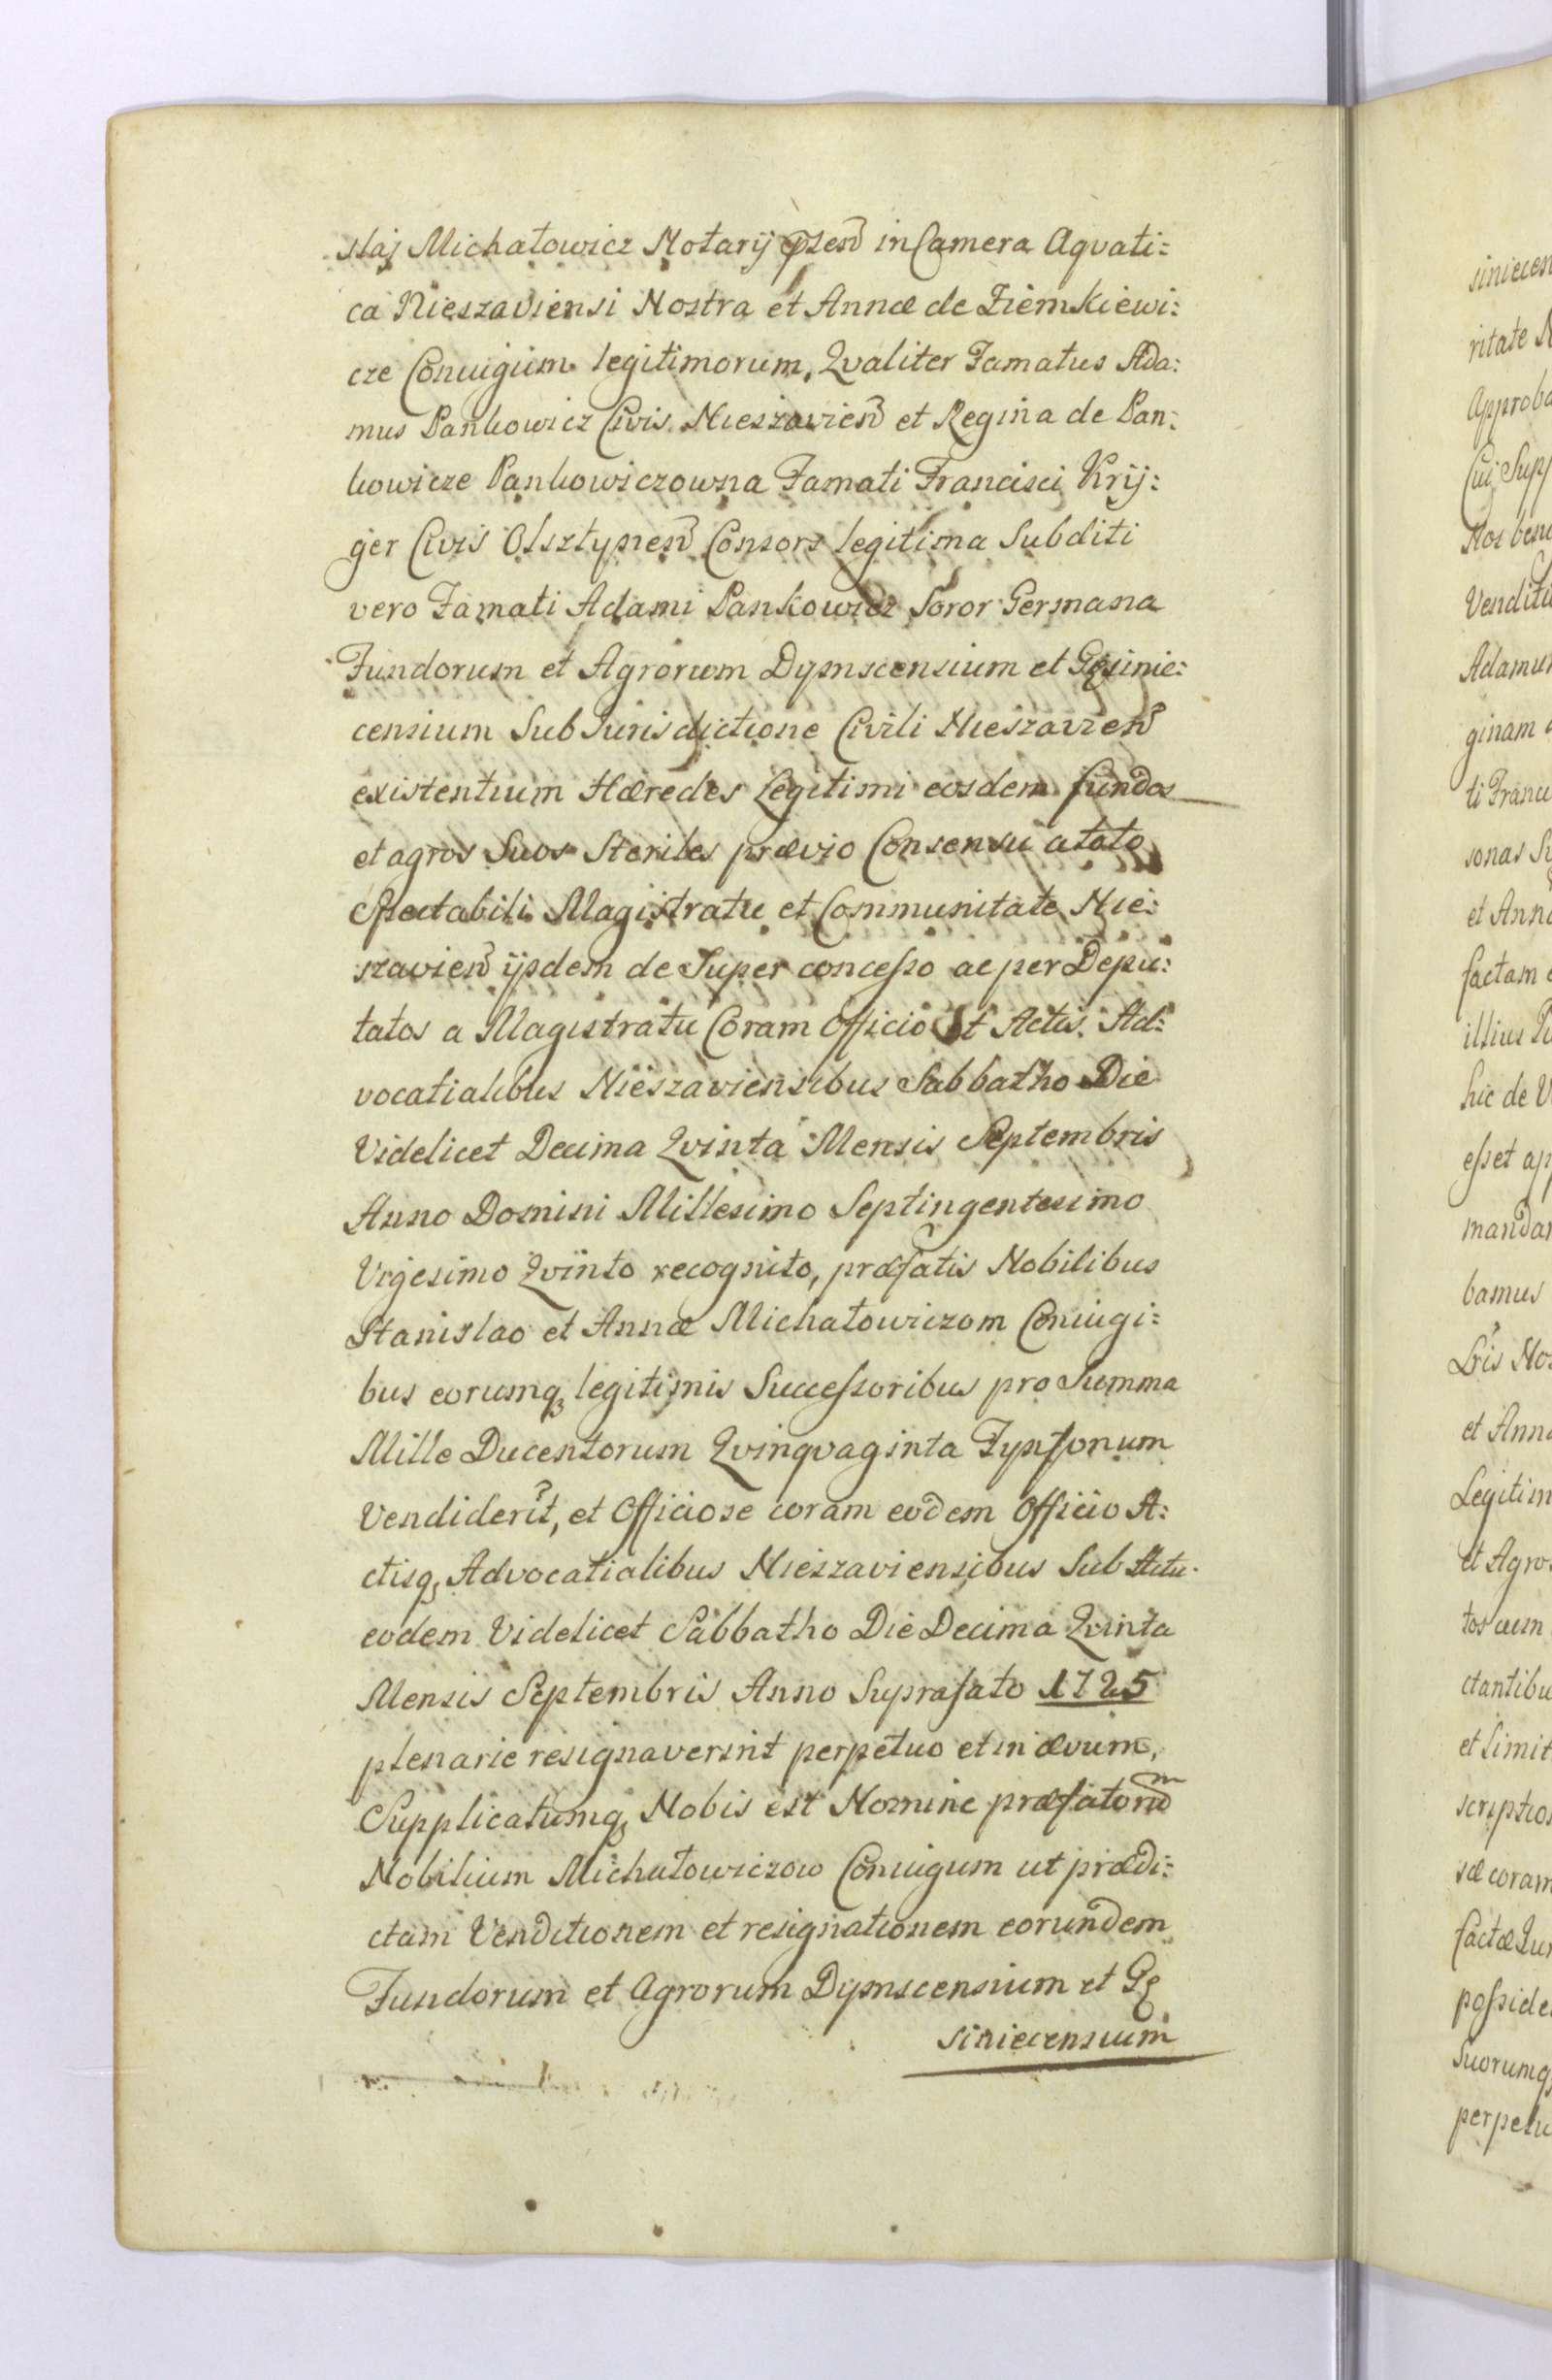 slaj Michałowicz Notarij pzten̄ in Camera Aqvati:
ca Nieszaviensi Nostra et Annæ de Ziemkiewi:
cze Coniugum legitimorum, Qvaliter Famatus Ada:
mus Pankowicz Civis Nieszavien̄ et Regina de Pan:
kowicze Pankowiczowna Famati Francisci Krij:
ger Civis Olsztynen̄ Consors legitima Subditi
vero Famati Adami Pankowicz Soror Germana
Fundorum et Agrorum Dymscensium et Gęsinie:
censium Sub Jurisdictione Civili Nieszavien̄
existentium Hæredes Legitimi eosdem fundos
et agros Suos Steriles prævio Consensu a toto
Spectabili Magistratu et Communitate Nie:
szavien̄ ijsdem de Super concesso ac per Depu:
tatos a Magistratu Coram Officio Et Actis Ad:
vocatialibus Nieszaviensibus Sabbatho Die
Videlicet Decima Qvinta Mensis Septembris
Anno Domini Millesimo Septingentesimo
Vigesimo Qvinto recognito, præfatis Nobilibus
Stanislao et Annæ Michałowiczom Coniugi:
bus eorumq₃ legitimis Successoribus pro Summa
Mille Ducentorum Qvinqvaginta Tynfonum
Vendiderīt, et Officiose coram eodem Officio A:
ctisq₃ Advocatialibus Nieszaviensibus Sub Actu
eodem Videlicet Sabbatho Die Decima Qvinta
Mensis Septembris Anno Suprafato 1725
plenarie resignaverint perpetuo et in ævum,
Supplicatumq₃ Nobis est Nomine præfatorum
Nobilium Michałowiczow Coniugum ut prædi:
ctam Venditionem et resignationem eorundem
Fundorum et Agrorum Dymscensium et Gę
siniecensium
siniecen
ritate N
Approba
Cui Supp
Nos bene
Venditi
Adamum
ginam
ti Franci
sonas Su
et Anna
factam
illius
hic de V
esset ap
mandar
bamus
Lr̄is No
et Anna
Legitim
et Agro
tos cum
ctantibu
et Limit
scriptio
sæ coram
factæ Jur
posside
Suorumq
perpetu